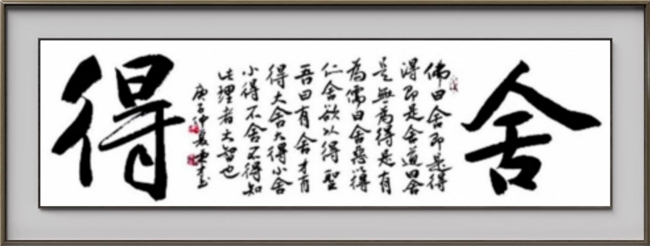 舍
佛曰舍即是得
得即是舍道曰舍
是無為得是有
為儒曰舍惡以得
仁舍欲以得聖
吾曰有舍才有
得大舍大得小舍
小得不舍不得知
此理者大智也
庚子仲夏
得